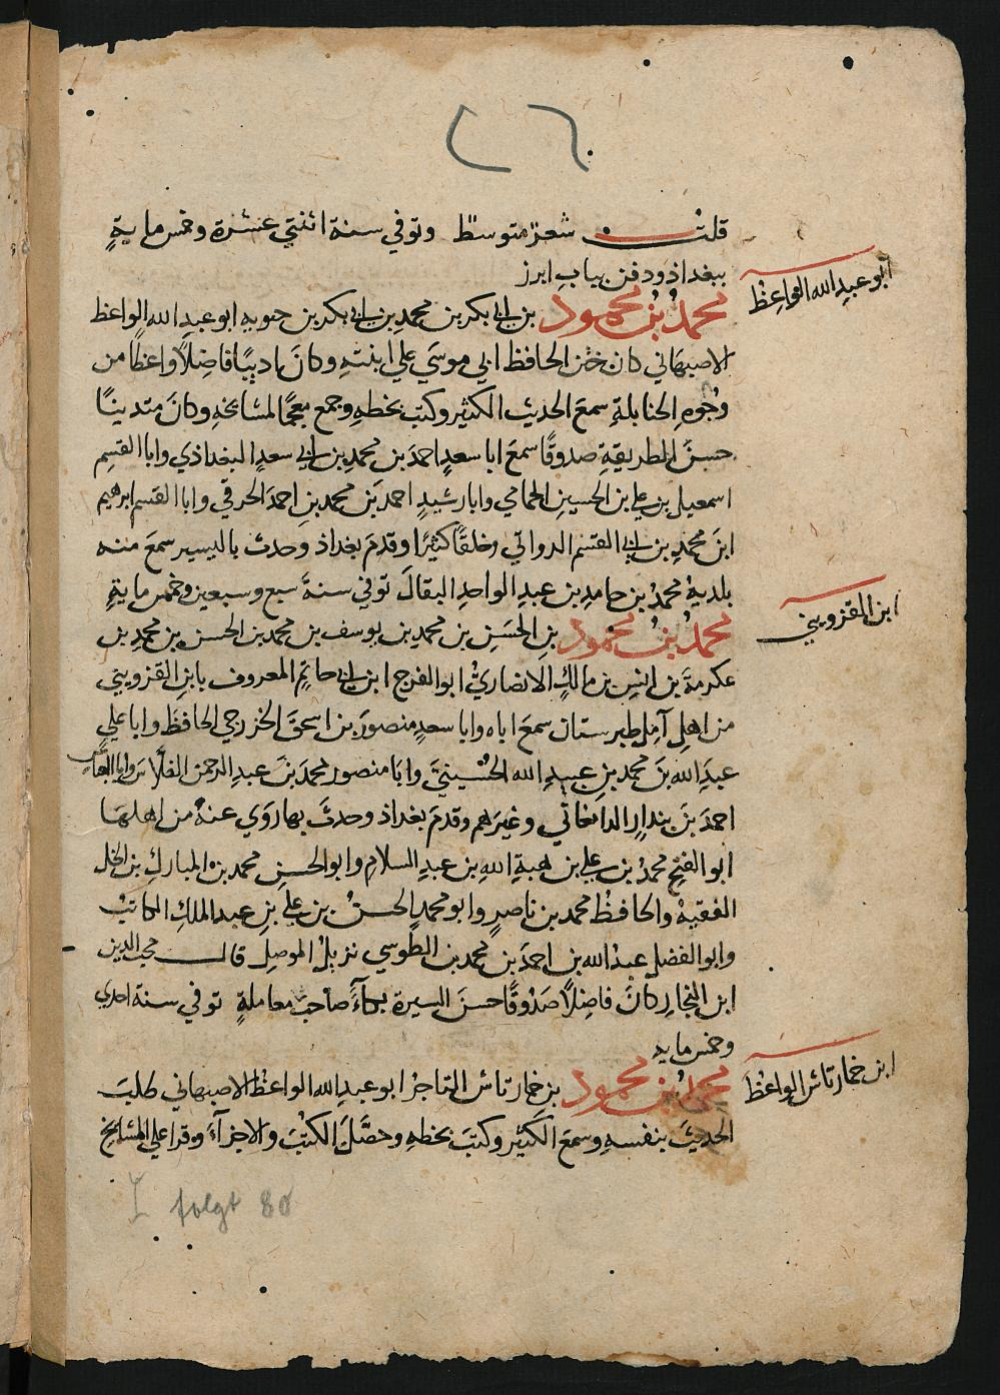 ٢٦
قلت شعر متوسط وتوفي سنة اثنتي عشرة وخمس ماية
ببغداذ ودفن بباب ابرز
ابو عبد الله الواعظ
محمد بن محمود بن ابي بكر بن محمد بن ابي بكر بن حنويه ابو عبد الله الواعظ
الاصبهاني كان ختن الحافظ ابي موسي علي ابنته وكان اديبًا فاضلًا واعظًا من
وجوه الحنابلة سمع الحديث الكثير وكتب بخطه وجمع معجمًا لمشايخه وكان متدينًا
حسن الطريقة صدوقًا سمع ابا سعد احمد بن محمد بن ابي سعد البغداذي وابا القسم
اسمعيل بن علي بن الحسين الحمامي وابا رشيد احمد بن محمد بن احمد الخرقي وابا القسم ابرهيم
ابن محمد بن ابي القسم الدواتي وخلقًا كثيرًا وقدم بغداذ وحدث باليسير سمع منه
بلديه محمد بن حامد بن عبد الواحد البقال توفي سنة سبع وسبعين وخمس ماية
ابن القزويني
محمد بن محمود بن الحسن بن محمد بن يوسف بن محمد بن الحسن بن محمد بن
عكرمة بن انس بن مالك الانصاري ابو الفرج ابن ابي حاتم المعروف بابن القزويني
من اهل آمل طبرستان سمع اباه وابا سعد منصور بن اسحق الخزرجي الحافظ وابا علي
عبد الله بن محمد بن عبيد الله الحسيني وابا منصور محمد بن عبد الرحمن الفلاس وابا العباس
احمد بن بندار الدامغاني وغيرهم وقدم بغداذ وحدث بها روي عنه من اهلها
ابو الفتح محمد بن علي بن هبة الله بن عبد السلام وابو الحسن محمد بن المبارك بن الخل
الفقيه والحافظ محمد بن ناصر وابو محمد الحسن بن علي بن عبد الملك الكاتب
وابو الفضل عبد الله بن احمد بن محمد بن الطوسي نزيل الموصل قال محب الدين
ابن النجار كان فاضلًا صدوقًا حسن السيرة بكاءً صاحب معاملة توفي سنة احدي
وخمس ماية
ابن خمارتاش الواعظ
محمد بن محمود بن خمارتاش التاجر ابو عبد الله الواعظ الاصبهاني طلب
الحديث بنفسه وسمع الكثير وكتب بخطه وحصل الكتب والاجزاء وقرا علي المشايخ
folgt 80